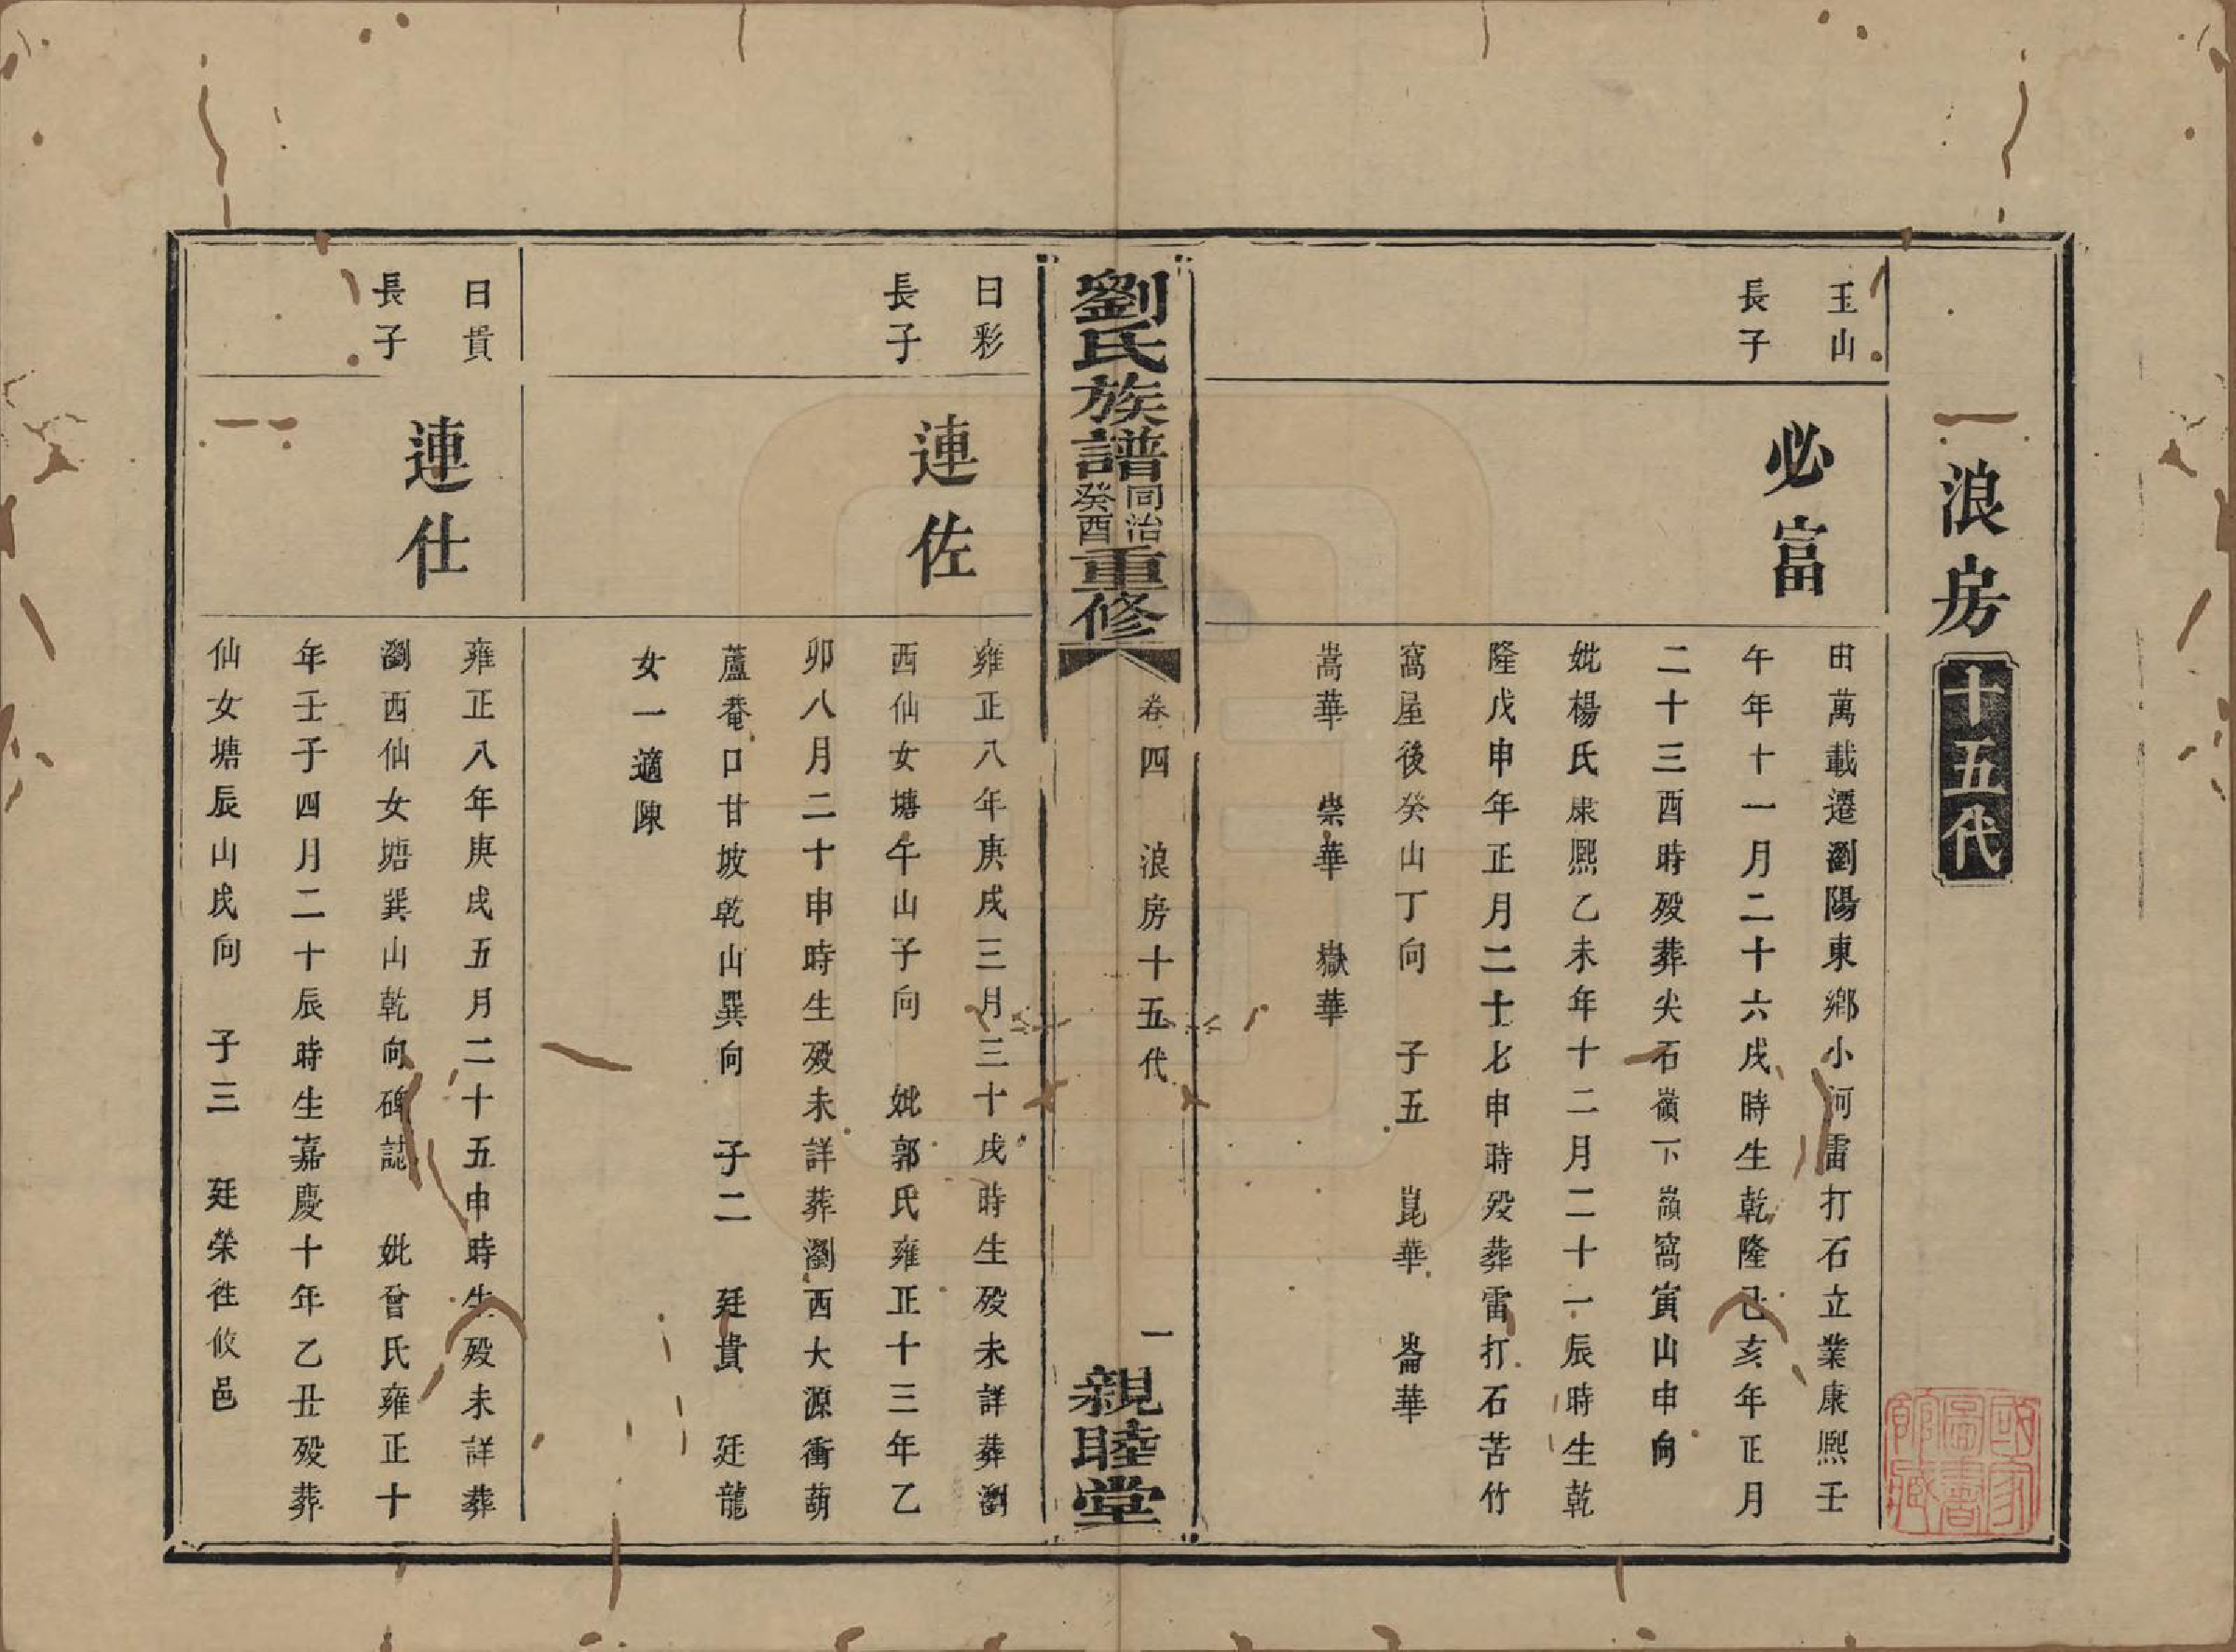 浪房十五代
玉山
長子
必富
田萬載遷瀏陽東鄉小河雷打石立業康熙壬
午年十一月二十六戌時生乾隆己亥年正月
二十三酉時歿葬尖石嶺下嶺窩寅山申向
妣楊氏康熙乙未年十二月二十一辰時生乾
隆戊申年正月二十七申時歿葬雷打石苦竹
窩屋後癸山丁向 子五 崑華 崙華
嵩華 崇華 嶽華
劉氏族譜同治癸酉重修
卷四 浪房十五代 一
親睦堂
日彩
長子
連佐
雍正八年庚戌三月三十戌時生歿未詳葬瀏
西仙女塘午山子向 妣郭氏雍正十三年乙
卯八月二十申時生歿未詳葬瀏西大源衝葫
蘆菴口甘坡乾山巽向 子二 廷貴 廷龍
女一適陳
日貴
長子
連仕
雍正八年庚戌五月二十五申時生歿未詳葬
瀏西仙女塘巽山乾向碑誌 妣曾氏雍正十
年壬子四月二十辰時生嘉慶十年乙丑歿葬
仙女塘辰山戌向 子三 廷榮徃攸邑
國家圖書館藏